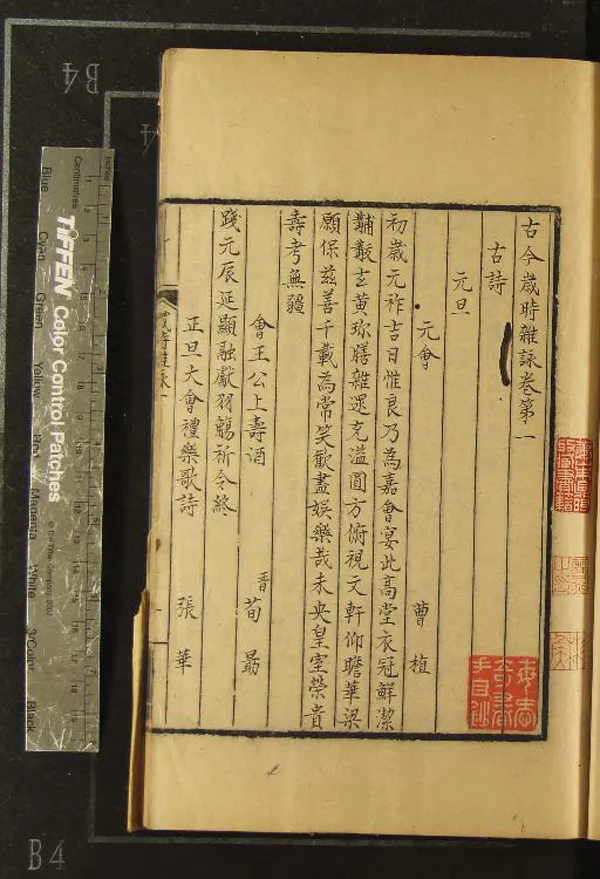 古今歲時雜詠卷第一
古詩
元旦
元會 曹植
初歲元祚吉日惟良乃為嘉會宴此高堂衣冠鮮潔
黼黻玄黃珍膳雜遝充溢圓方俯視文軒仰瞻華梁
願保茲善千載為常笑歡盡娛樂哉未央皇室榮貴
壽考無疆
會王公上壽酒 晋荀勗
踐元辰延顯融獻羽觴祈令終
正旦大會禮樂歌詩 張華
歲時雜詠一
手自鈔
B4
B4
TIFFEN Color Control Patches
© The Tiffen Company, 2007
Centimetres
Inches
Blue
Cyan
Green
Yellow
Red
Magenta
White
3/Color
Black